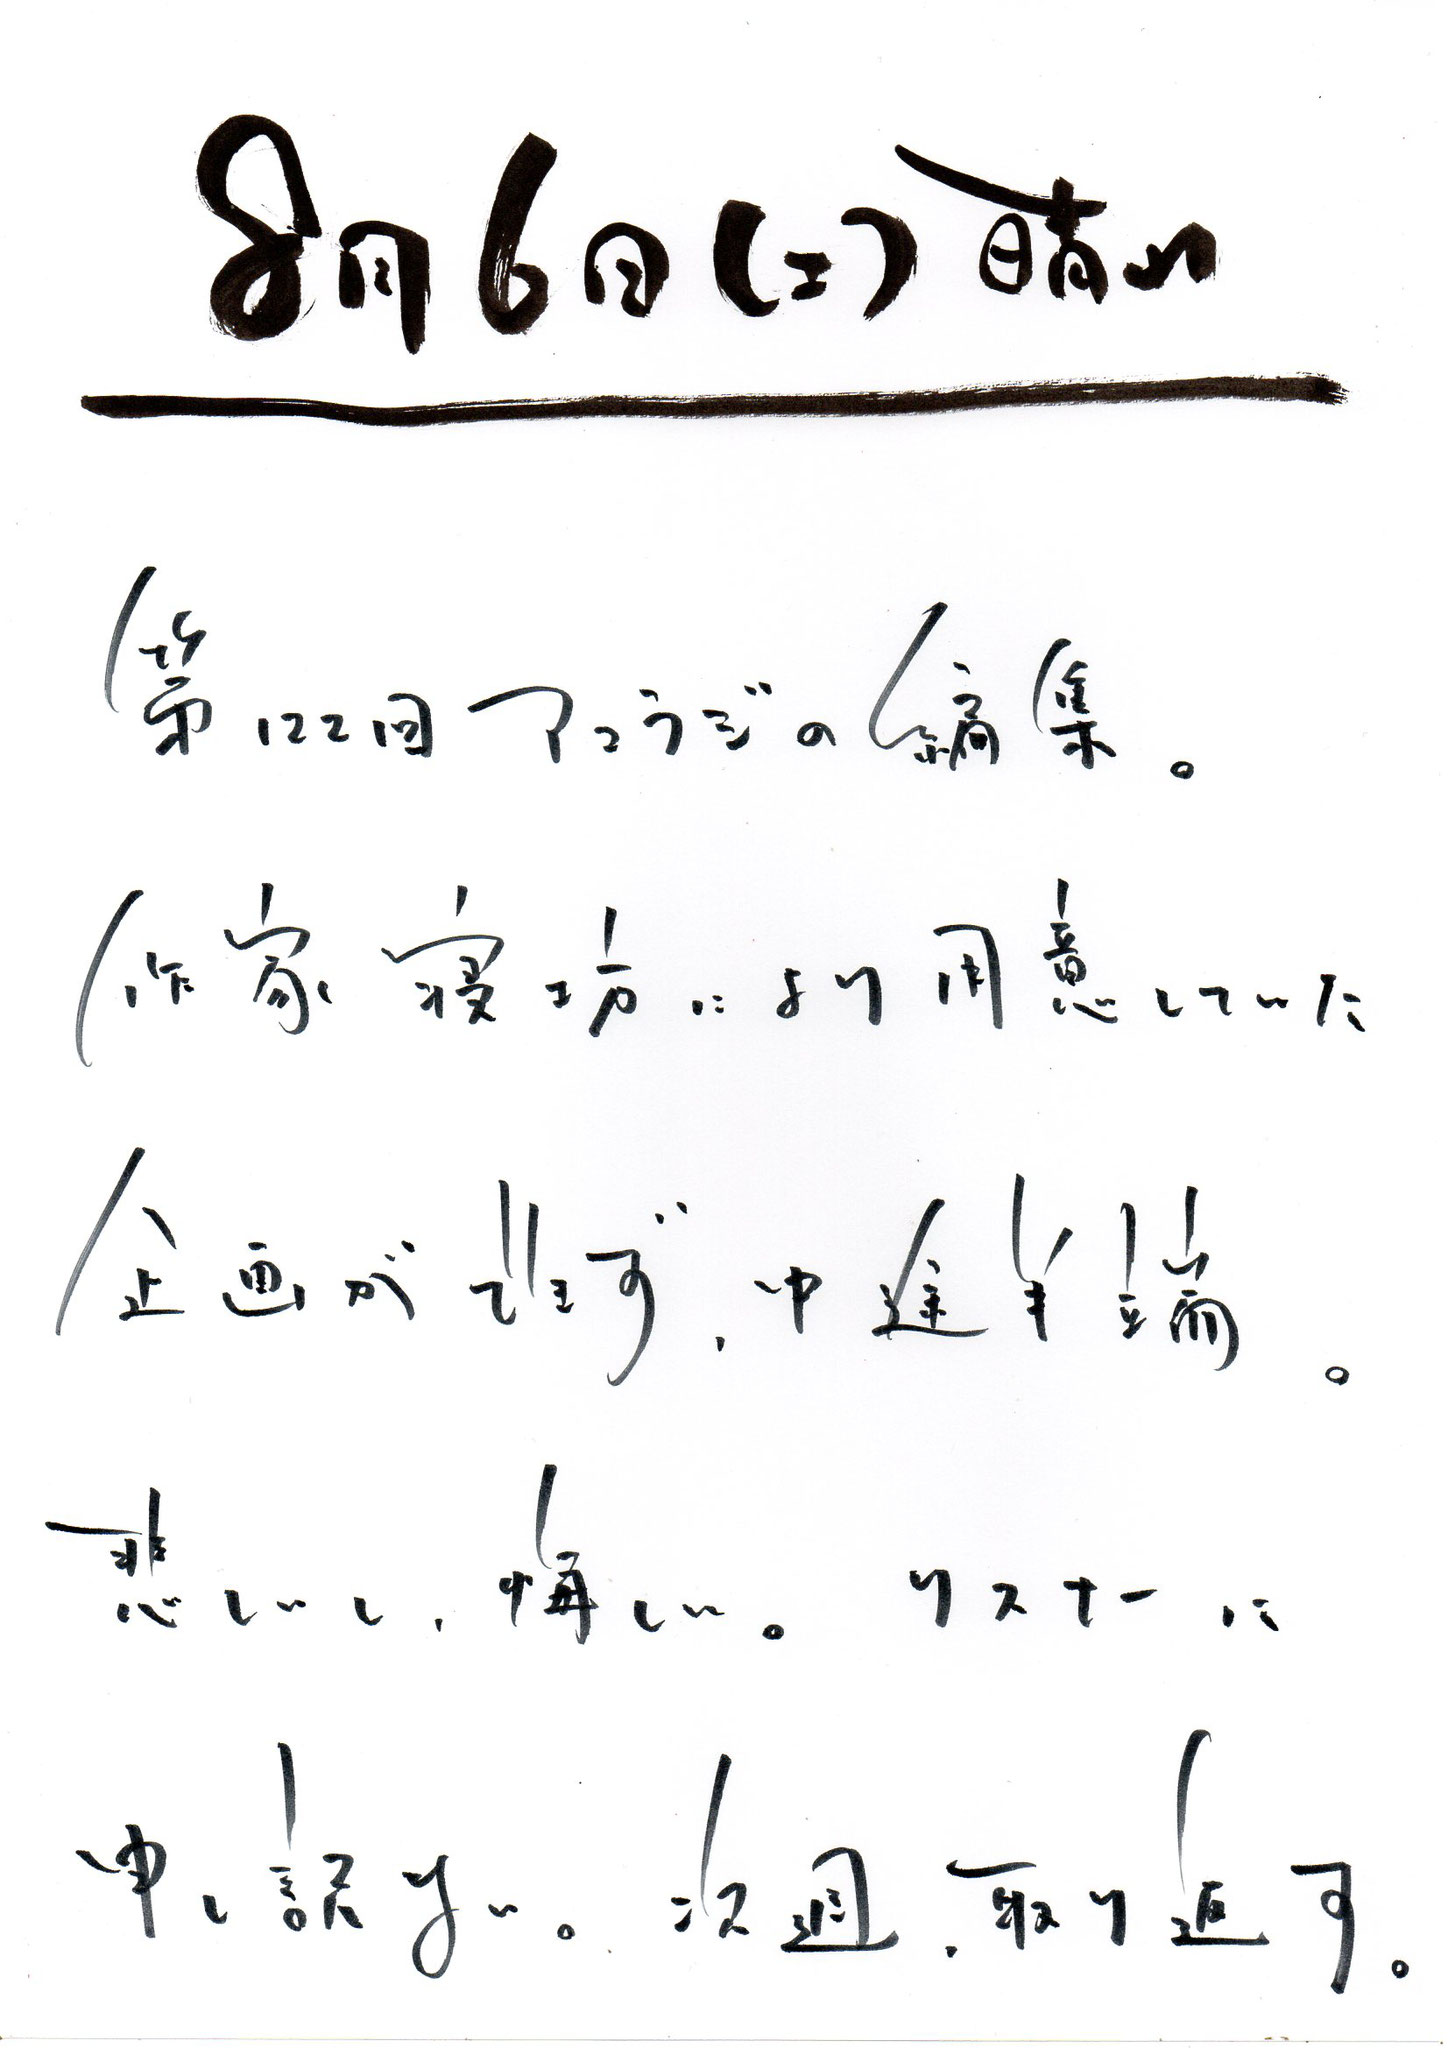 8月6日(土)晴れ
第122回アコラジの編集。
作家寝坊により用意していた
企画が出せず、中途半端。
悲しいし、悔しい。リスナーに
申し訳ない。次週、取り返す。